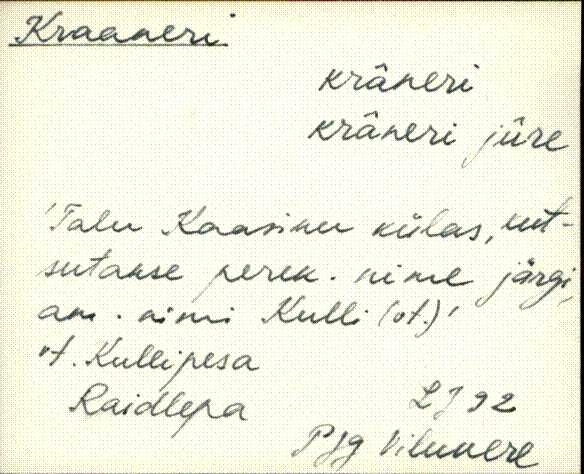 Kraaneri
krâneri
krâneri jüre
'Talu Kaasiku külas, kut-
sutakse perek. nime järgi,
am. nimi Kulli (vt.)'
vt. Kullipesa
Raidlepa
LJ 92
PJg Viluvere